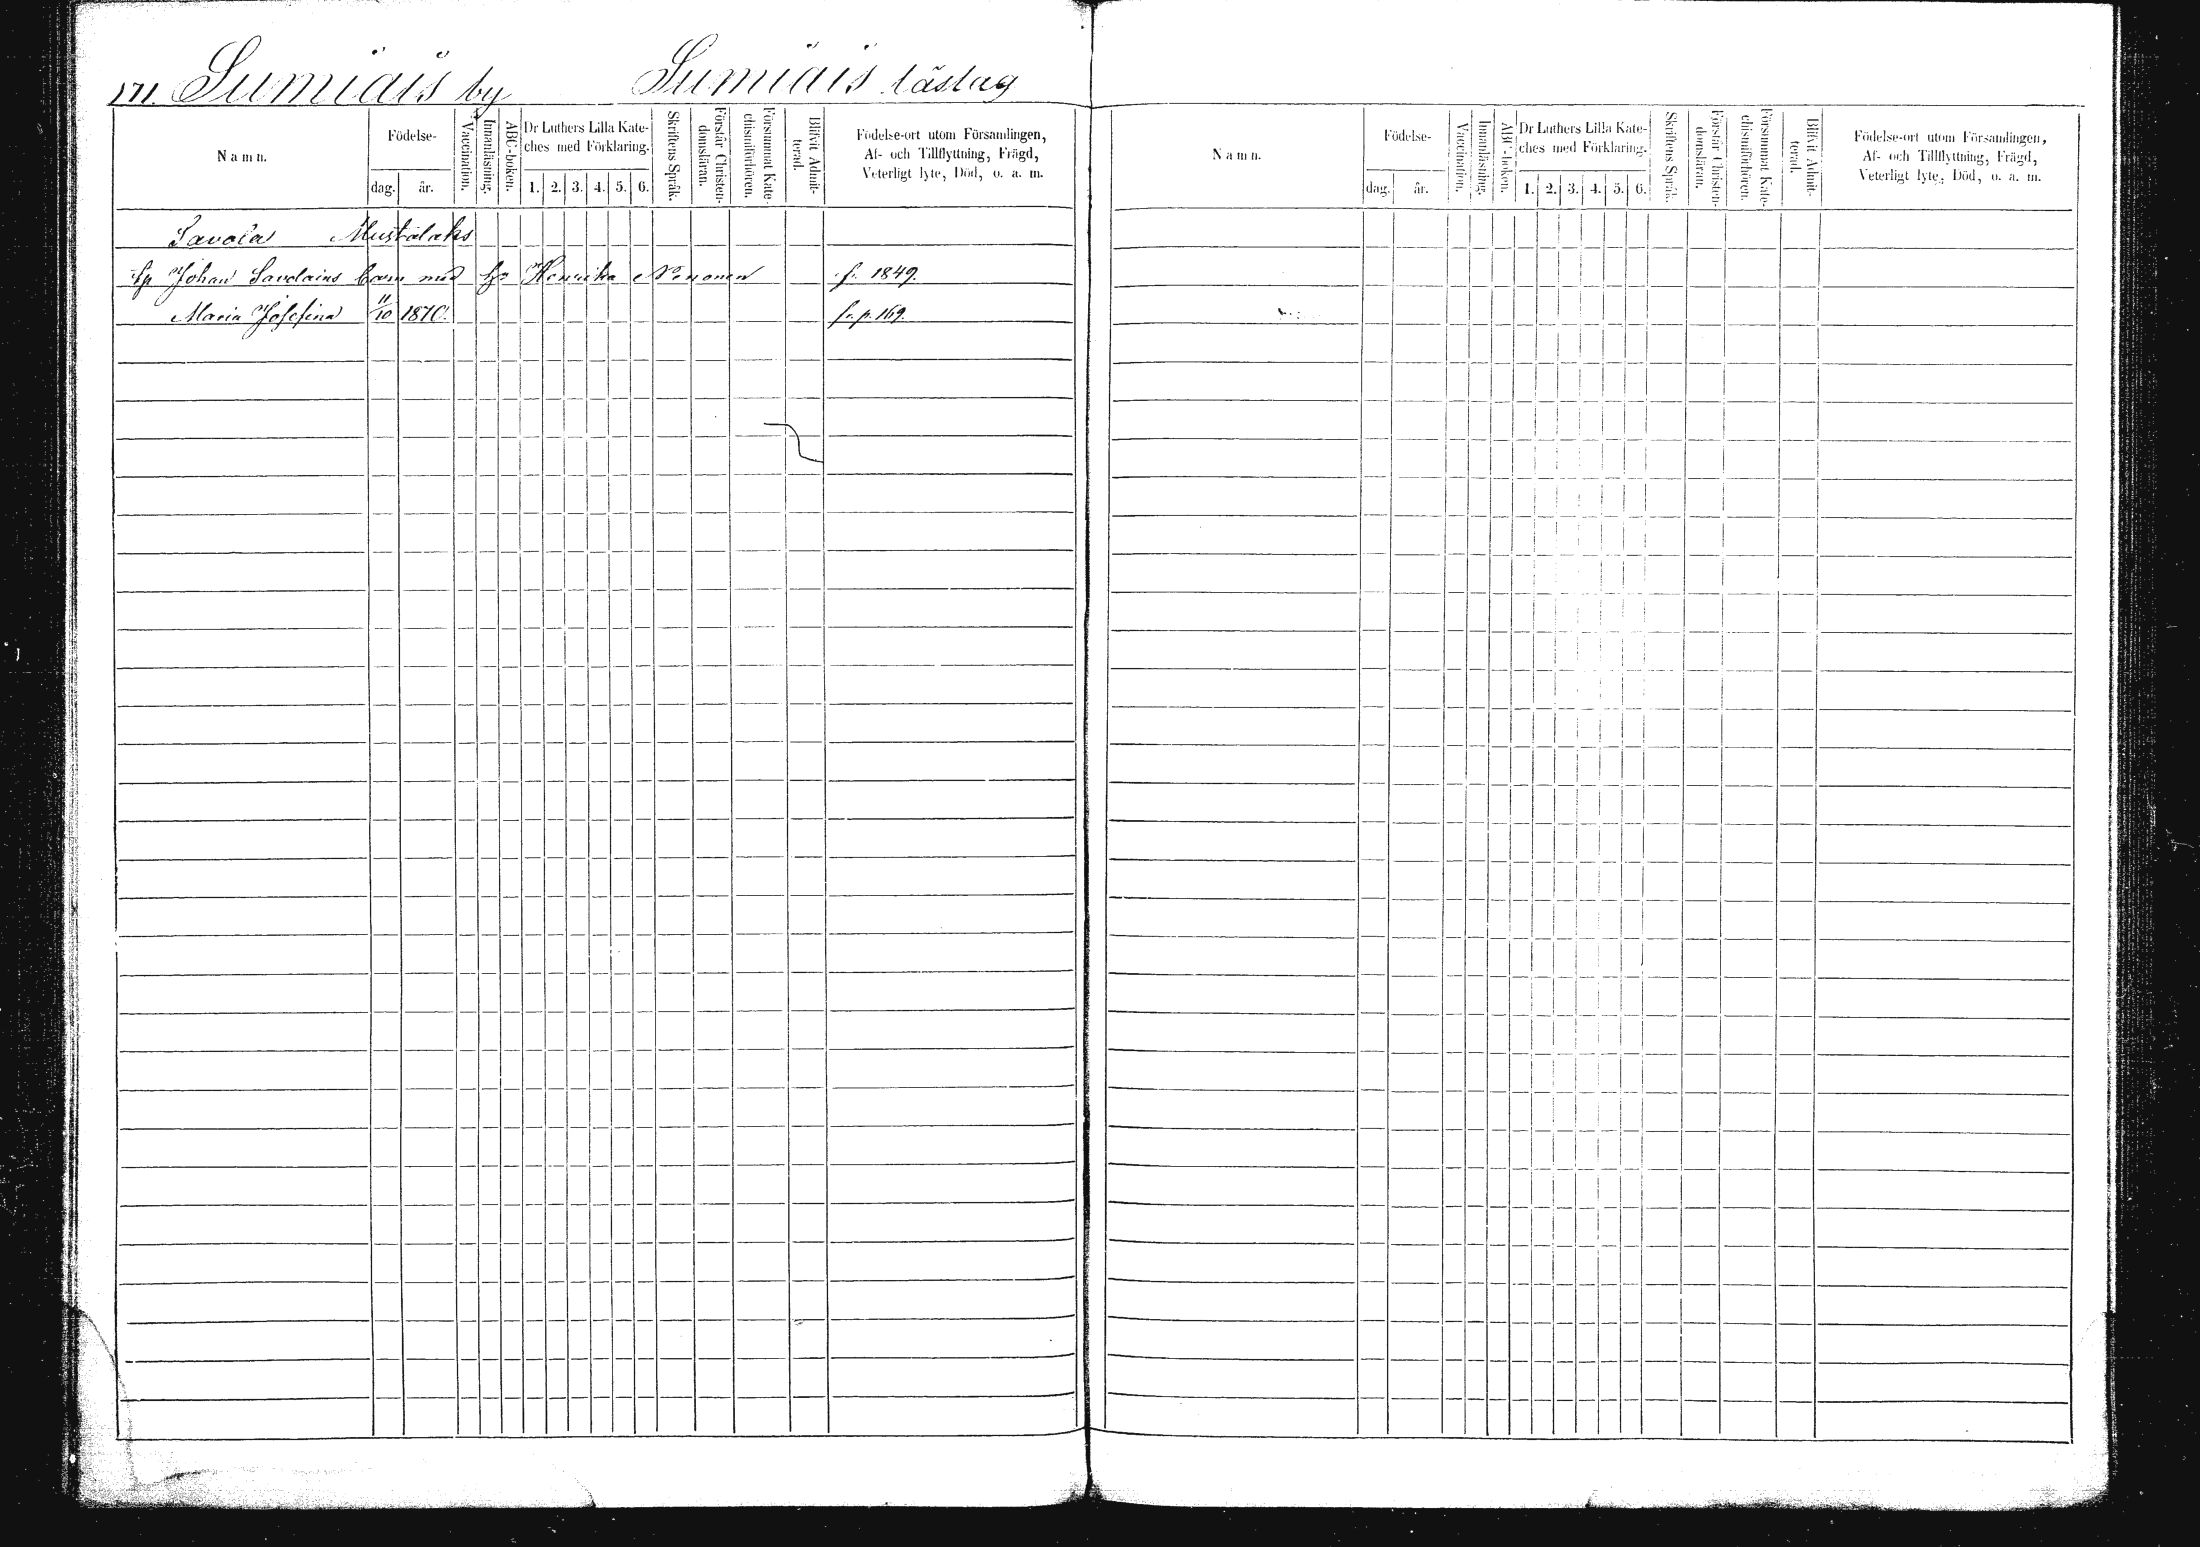 171. Sumiais by Sumiais läslag
Namn. Födelse- dag. år. Vaccination. Innanläsning. ABC-boken. Dr Luthers Lilla Kateches med Förklaring. 1. 2. 3. 4. 5. 6. Skriftens Språk. Förstår Christendomsläran. Försummat Katechismiförhören. Blifvit Admitterad. Födelse-ort utom Församlingen, Af- och Tillflyttning, Frägd, Veterligt lyte, Död, o. a. m.
Savola Mustalaks
Johan Savolains barn med Henrika Nenonen f. 1849.
Maria Josefina 11/10 1870. fr. p. 169.
Namn. Födelse- dag. år. Vaccination. Innanläsning. ABC-boken. Dr Luthers Lilla Kateches med Förklaring. 1. 2. 3. 4. 5. 6. Skriftens Språk. Förstår Christendomsläran. Försummat Katechismiförhören. Blifvit Admitterad. Födelse-ort utom Församlingen, Af- och Tillflyttning, Frägd, Veterligt lyte, Död, o. a. m.